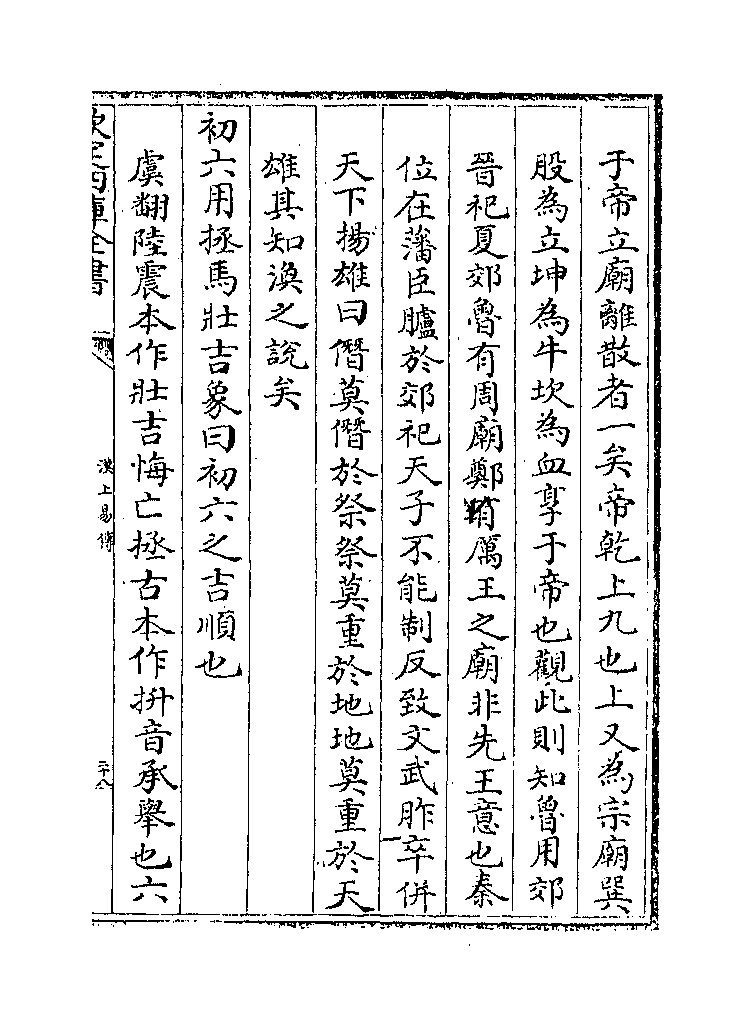 于帝立廟離散者一矣帝乾上九也上又為宗廟巽
股為立坤為牛坎為血享于帝也觀此則知魯用郊
晉祀夏郊魯有周廟鄭有厲王之廟非先王意也秦
位在藩臣臚於郊祀天子不能制反致文武胙卒併
天下揚雄曰僭莫僭於祭祭莫重於地地莫重於天
雄其知渙之說矣
初六用拯馬壯吉象曰初六之吉順也
虞翻陸震本作壯吉悔亡拯古本作拚音承舉也六
欽定四庫全書
漢上易傳